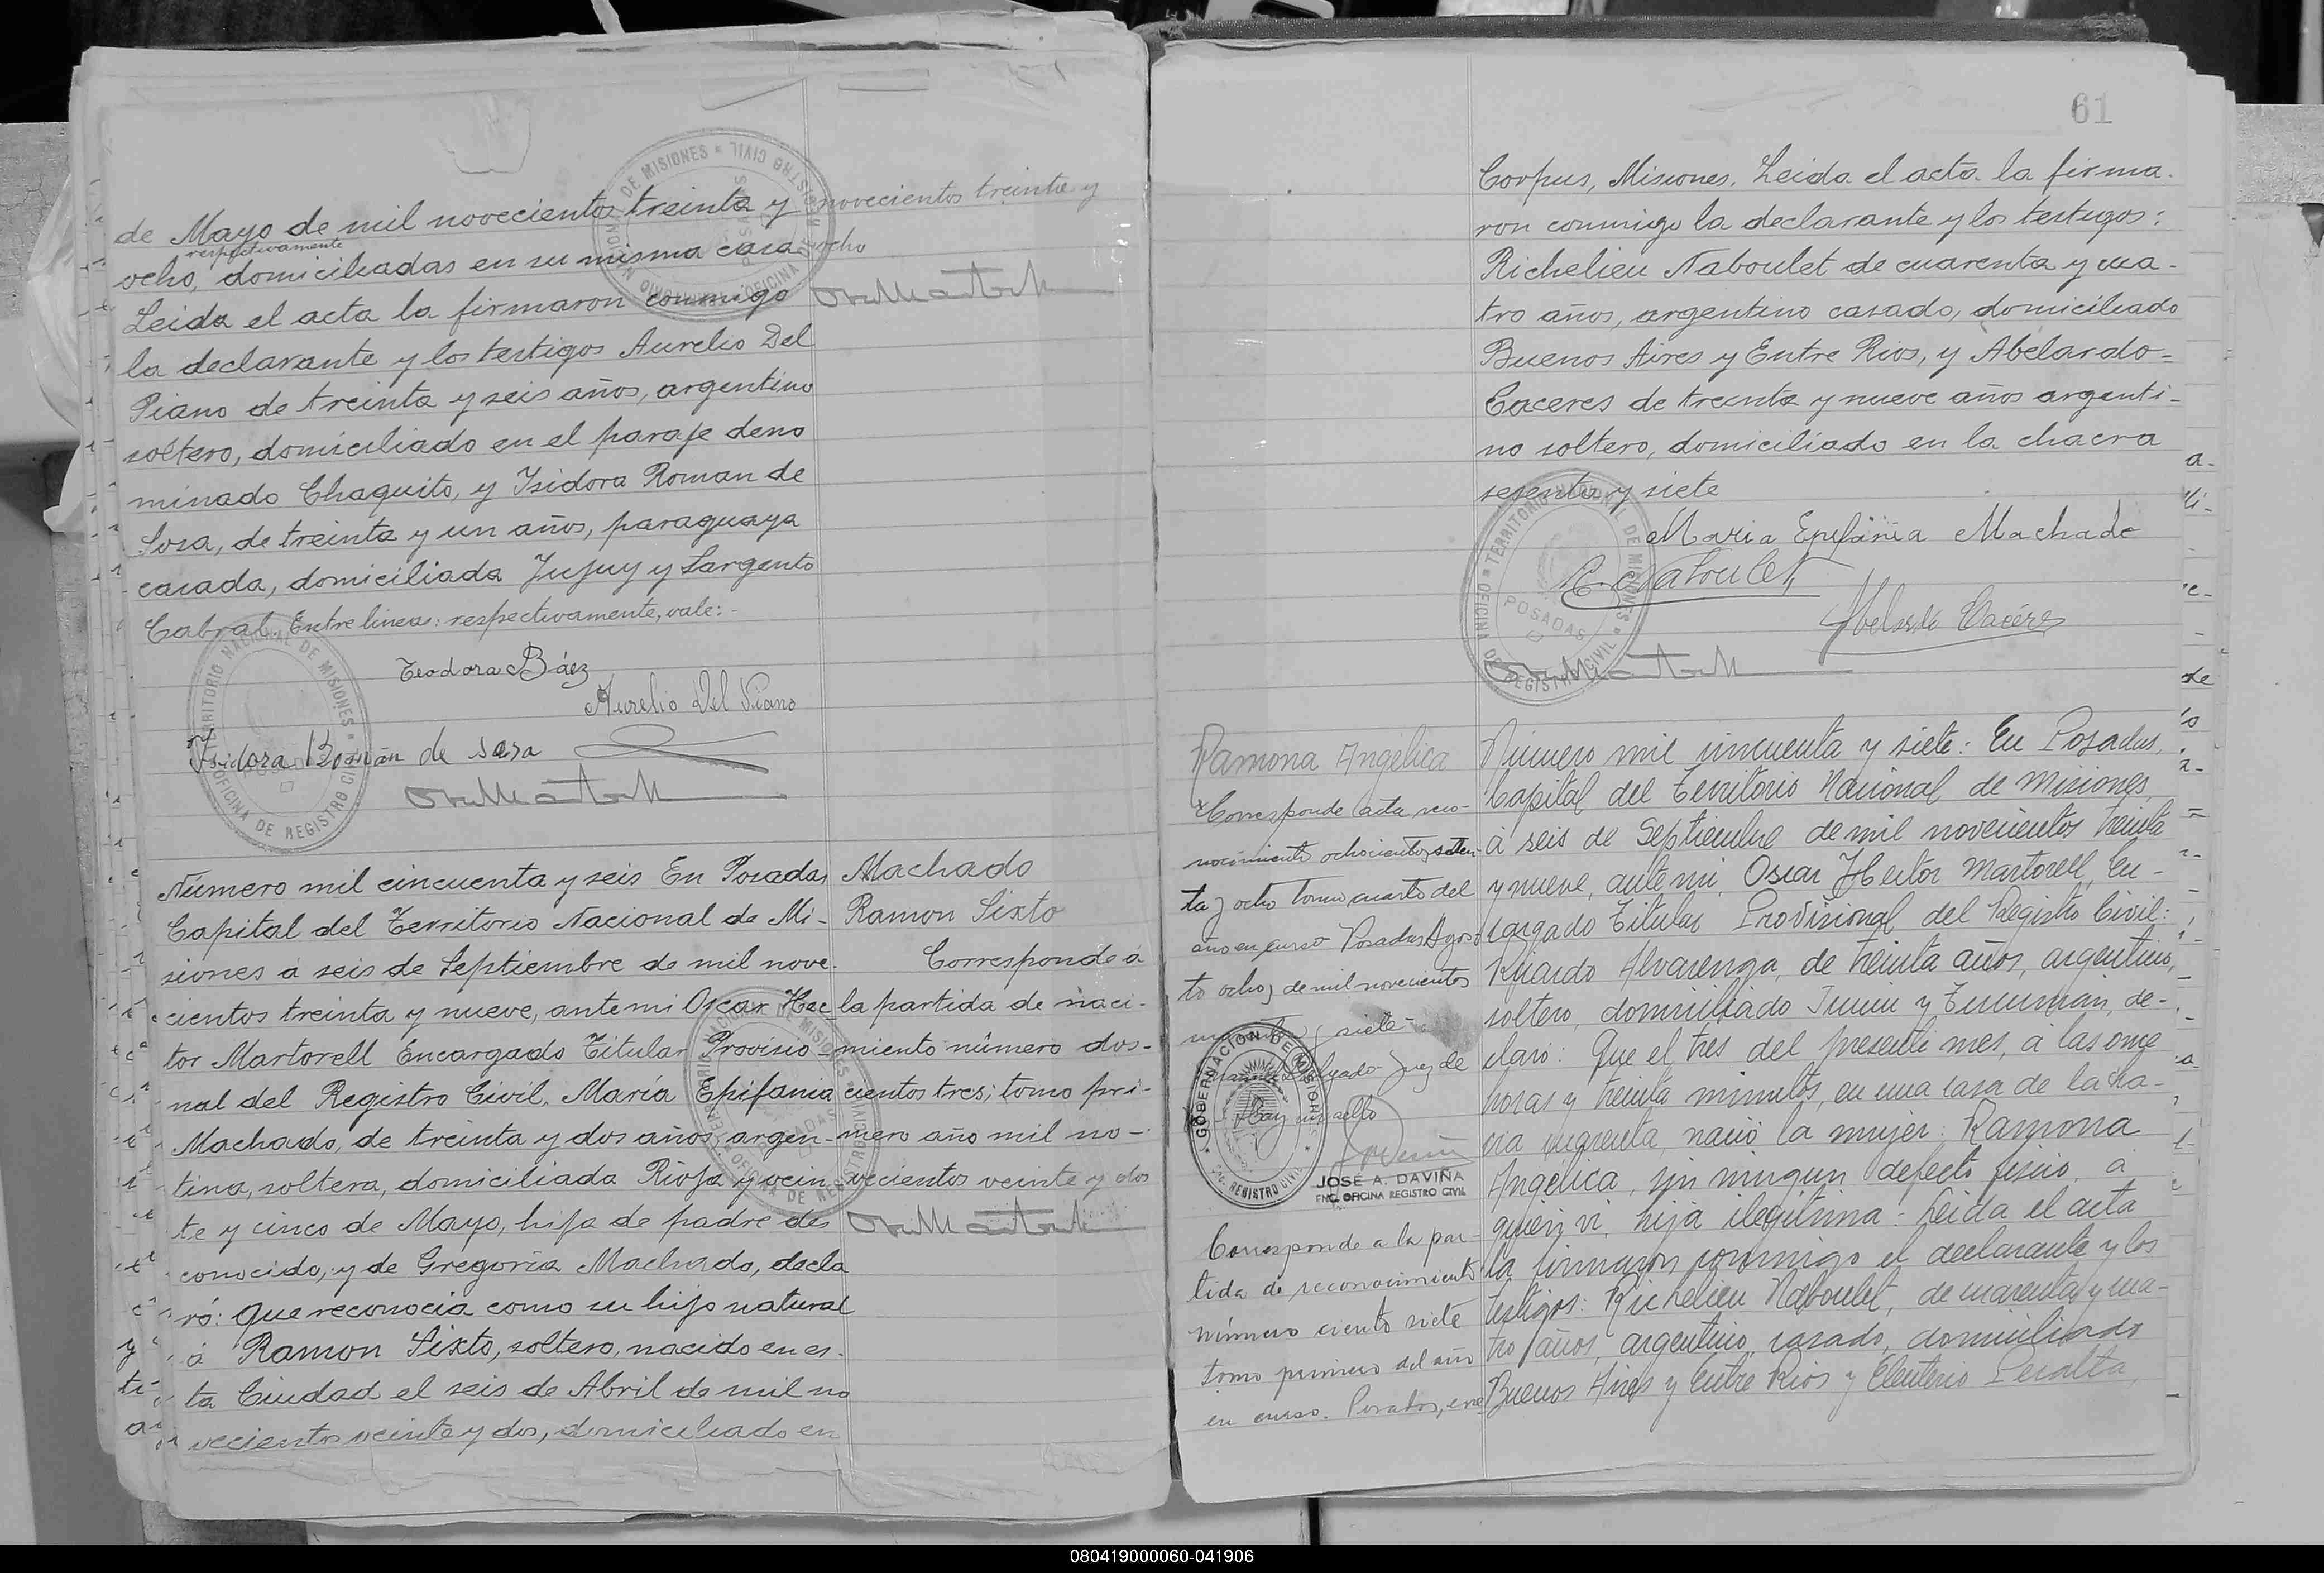 de Mayo de mil novecientos treinta y
respectivamente
ocho, domiciliadas en su misma casa
Leida el acta la firmaron conmigo
la declarante y los testigos Aurelio Del
Piano de treinta y seis años, argentino
soltero, domiciliado en el paraje deno
minado Chaquito, y Isidora Roman de
Sosa, de treinta y un años, paraguaya
casada, domiciliada Jujuy y Sargento
Cabral. Entre lineas: respectivamente, vale:-
Teodora Báez
Aurelio Del Piano
Isidora Román de sosa
novecientos treinta y
ocho
Número mil cincuenta y seis En Posadas
Capital del Territorio Nacional de Mi-
siones a seis de Septiembre de mil nove-
cientos treinta y nueve, ante mi Oscar Hec
tor Martorell Encargado Titular Provisio-
nal del Registro Civil, María Epifania
Machado, de treinta y dos años, argen-
tina, soltera, domiciliada Rioja y vein
te y cinco de Mayo, hija de padre des
conocido, y de Gregoria Machado, decla
ró: Que reconocia como su hijo natural
á Ramon Sixto, soltero, nacido en es-
ta Ciudad el seis de Abril de mil no
vecientos veinte y dos, domiciliado en
Machado
Ramon Sixto
Corresponde a
la partida de naci-
miento número dos-
cientos tres; tomo pri-
mero año mil no-
vecientos veinte y dos
61
Corpus, Misiones. Leida el acta la firma-
ron conmigo la declarante y los testigos:
Richelieu Naboulet de cuarenta y cua-
tro años, argentino casado, domiciliado
Buenos Aires y Entre Rios, y Abelardo=
Caceres de treinta y nueve años argenti-
no soltero, domiciliado en la chacra
sesenta y siete
Maria Epifania Machado
R. Naboulet
Abelardo Cacéres
TERRITORIO NACIONAL DE MISIONES
OFICINA DE REGISTRO CIVIL
POSADAS
Ramona Angélica
Corresponde acta reco-
nocimiento ochocientos seten-
ta y ocho tomo cuarto del
año en curso Posadas Agos-
to ocho de mil novecientos
siete
Juez de
Hay un sello
GOBERNACIÓN DE MISIONES
REGISTRO CIVIL
JOSÉ A. DAVIÑA
ENC. OFICINA REGISTRO CIVIL
Corresponde a la par-
tida de reconocimiento
número ciento siete
tomo primero del año
en curso. Posadas, ene
Número mil cincuenta y siete: En Posadas,
Capital del Territorio Nacional de Misiones,
á seis de Septiembre de mil novecientos treinta
y nueve, ante mi, Oscar Hector Martorell, En-
cargado Titular Provisional del Registro Civil:
Ricardo Alvarenga, de treinta años, argentino,
soltero, domiciliado Junin y Tucuman, de-
claró: Que el tres del presente mes, á las once
horas y treinta minutos, en una casa de la cha-
cra cuarenta, nació la mujer: Ramona
Angelica, sin ningun defecto fisico, a
quien vi, hija ilegitima: Leida el acta
la firmaron conmigo el declarante y los
testigos: Richelieu Naboulet, de cuarenta y cua-
tro años, argentino, casado, domiciliado
Buenos Aires y Entre Rios y Eleuterio Peralta,
080419000060-041906